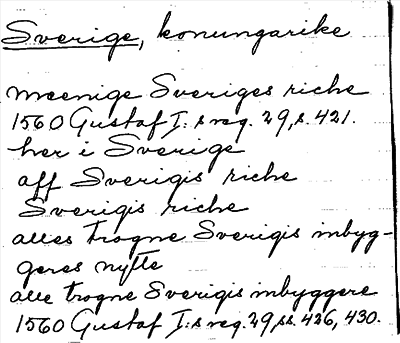 Sverige, konungarike
meenige Sveriges riche
1560 Gustaf I:s reg. 29, s. 421.
her i Sverige
aff Sverigis riche
Sverigis riche
alles trogne Sverigis inbyg-
geres nytte
alle trogne Sverigis inbyggere
1560 Gustaf I:s reg. 29, ss. 426, 430.